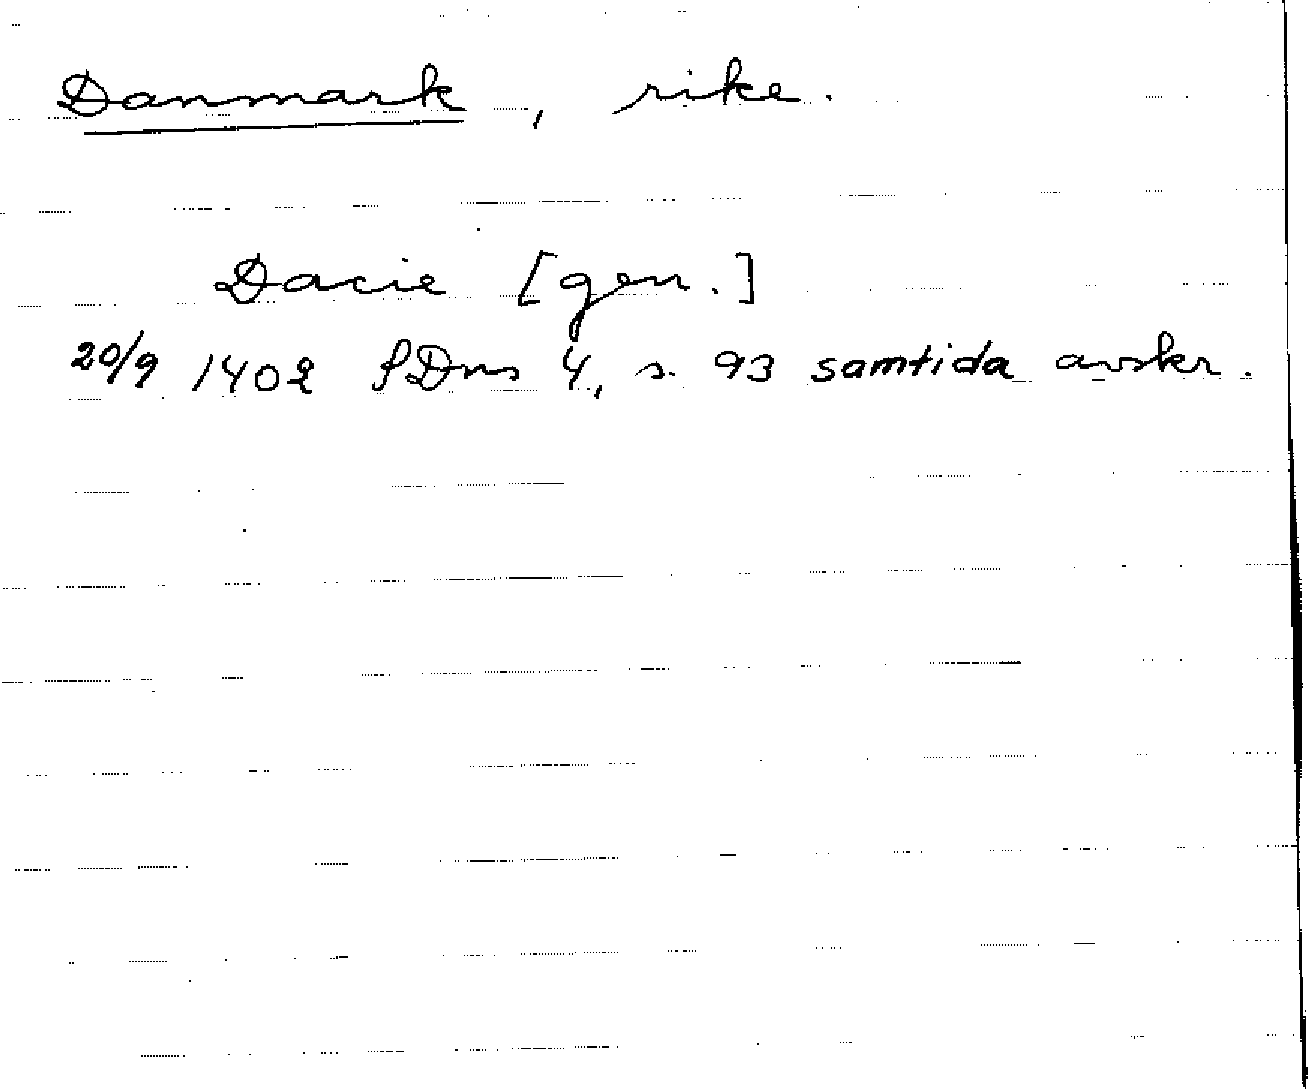 Danmark, rike.
Dacie [gen.]
20/9 1402 SDns 4, s. 93 samtida avskr.